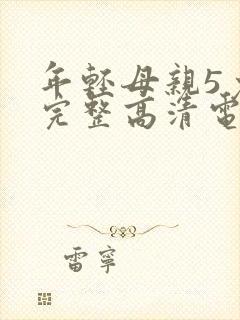 年輕母親5
完整高清電
雷寧